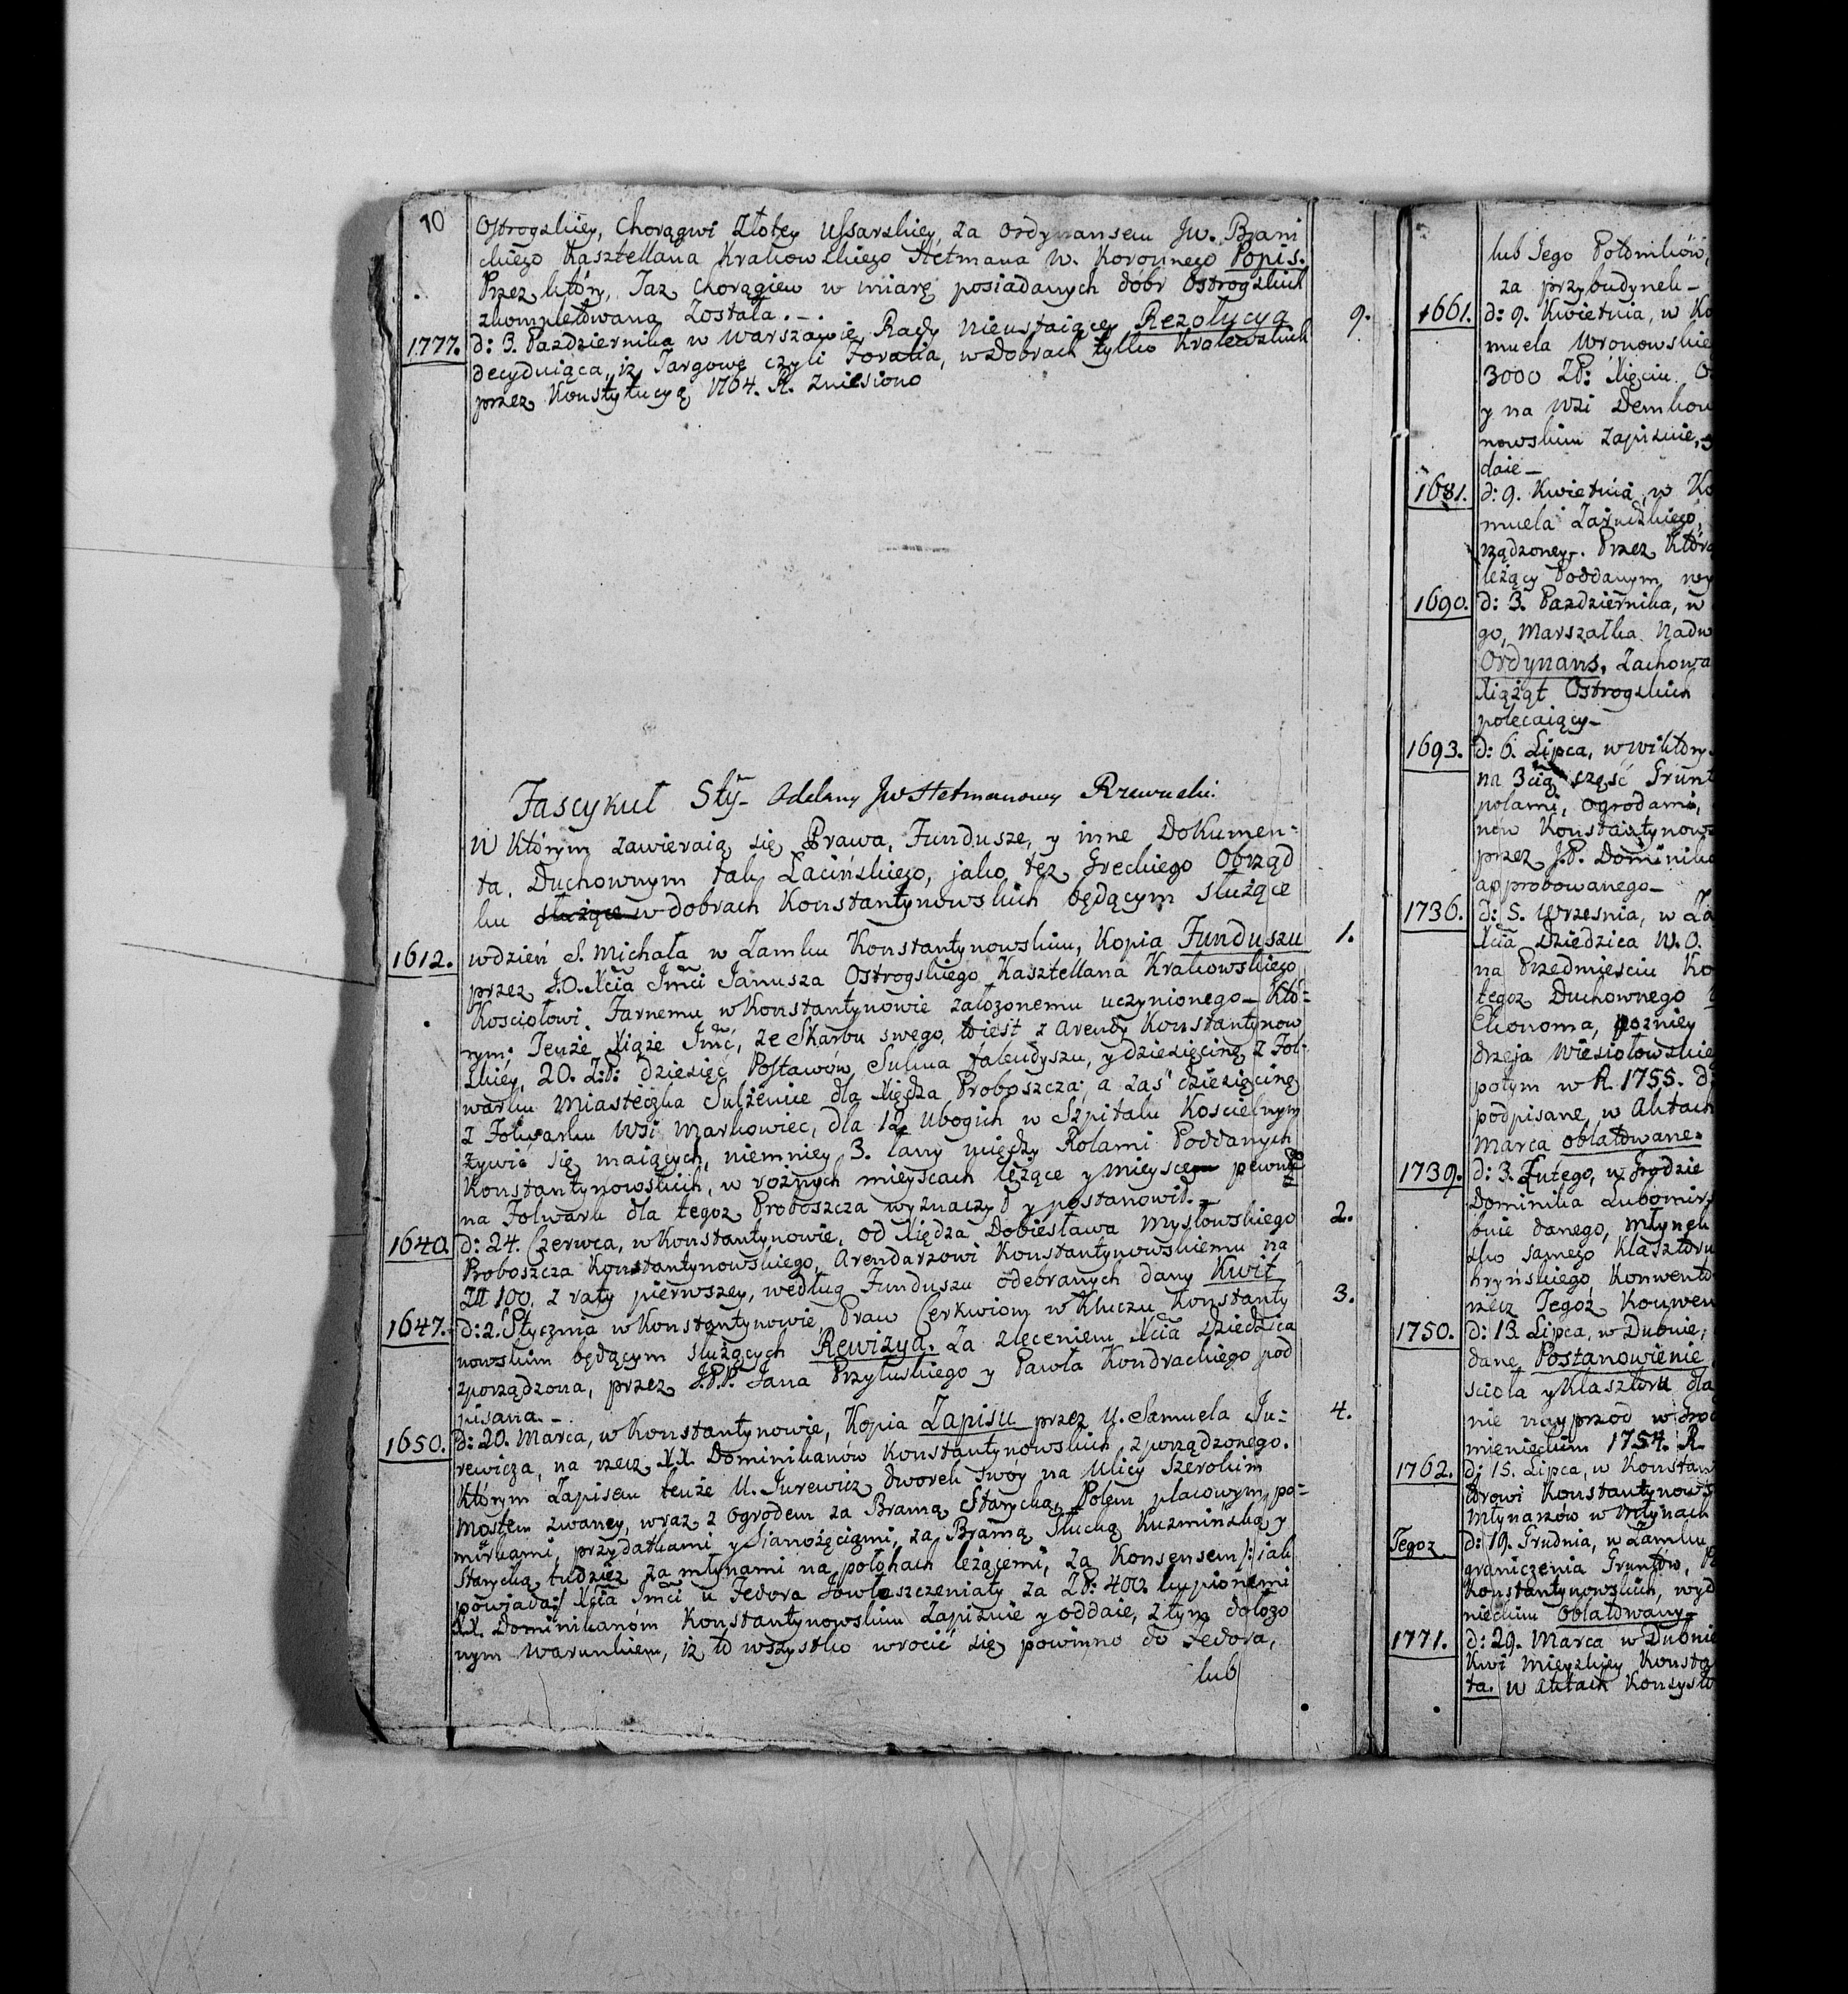 10
Ostrogskiey, Chorągwi Złotey Ussarskiey, za Ordynansem Jw. Brani
ckiego Kasztellana Krakowskiego Hetmana W. Koronnego Popis.
Przez który, Taz Chorągiew w miarę posiadanych dóbr Ostrogskich
zkompletowaną Została.-
1777. d: 3. Pazdziernika w Warszawie, Rady Nieustaiącey Rezolucya 9.
decyduiąca, iż Targowe czyli Foralia, w Dobrach tylko Krolewskich
przez Konstytucyą 1764. R. zniesiono
Fascykuł 5ty- Oddany Jw Hetmanowey Rzewuski:
W Którym zawieraią się Prawa, Fundusze, y inne Dokumen=
ta. Duchownym tak Łacińskiego, jako też Greckiego Obrząd
ku służące w dobrach Konstantynowskich będącym służące
1612. w dzień S. Michała w Zamku Konstantynowskim, Kopia Funduszu 1.
przez J.O. Xcia Jmći Janusza Ostrogskiego Kasztellana Krakowskiego,
Kosciołowi Farnemu w Konstantynowie założonemu uczynionego- Któ=
rym: Tenże Xiąże Jmć, ze Skarbu swego, to iest z Arendy Konstantynow
skiey, 20. Z:P: dziesięć Postawów Sukna falendyszu, y dziesięcinę z Fol:
warku Miasteczka Sulżenice dla Xiędza Proboszcza; a zaś dziesięcinę
z Folwarku Wsi Markowiec, dla 12. Ubogich w Szpitalu Koscielnym
żywić się maiących, niemniey 3. łany między Rolami Poddanych
Konstantynowskich, w rożnych mieyscach leżące y mieysce pewne
na Folwark dla tegoż Proboszcza wyznaczył y postanowił.-
1640. d: 24. Czerwca, w Konstantynowie, od Xiędza Dobiesława Mysłowskiego 2.
Proboszcza Konstantynowskiego, Arendarzowi Konstantynowskiemu na
Zł 100. z raty pierwszey, według Funduszu odebranych dany Kwit
1647. d: 2. Stycznia w Konstantynowie, Praw Cerkwiom w Kluczu Konstanty 3.
nowskim będącym służących Rewizya. Za zleceniem Xcia Dziedzica
zporządzona, przez J.PP. Jana Przyłuskiego y Pawła Kondrackiego pod
pisana.-
1650. d: 20. Marca, w Konstantynowie, Kopia Zapisu przez U. Samuela Ju= 4.
rewicza, na rzecz XX. Dominikanów Konstantynowskich zporządzonego.
Którym Zapisem tenże U. Jurewicz dworek swóy na Ulicy Szerokim
Mostem zwaney, wraz z ogrodem za Bramą Starycką, Polem placowym, po=
miórkami, przydatkami y Sianożęciami, za Bramą Słucką Kuzmińską y
Starycką, tudzież za młynami na połohach leżącemi, za Konsensem /: iak
powiada:/ Xcia Jmći u Fedora Jowłaszczeniaty za ZP: 400. kupionemi
XX. Dominikanóm Konstantynowskim Zapisuie y oddaie, z tym dołożo
nym Warunkiem, iż to wszystko wrocić się powinno do Fedora,
lub
lub Jego Potomków,
za przybudynek-
1661. d: 9. Kwietnia, w Ko
muela Wronowskie
3000 ZP: Xięciu O
y na Wsi Demkow
nowskim Zapisuie,
daie-
1681. d: 9. Kwietnia, w Ko
muela Zaruckiego,
rządzoney. Przez Któr
leżący Poddanym wy
1690. d: 3. Pazdziernika, w
go, Marszałka Nadw
Ordynans. Zachowa
Xiążąt Ostrogskich
polecaiący-
1693. d: 6. Lipca, w Wiktory
na 3cią część Grunt
polami, ogrodami,
now Konstantynows
przez J.P. Dominika
approbowanego-
1736. d: 5. Wrzesnia, w Za
Xcia Dziedzica W.O.
na Przedmiesciu Ko
tegoz Duchownego
Ekonoma, pozniey
drzeja Wiesiołowskie
potym w R. 1755. d:
podpisane, w Aktach
Marca oblatowane=
1739. d: 3. Lutego, w Grodzie
Dominika Lubomir
bnie danego, Młynek
sko samego Klasztoru
hryńskiego Konwento
rzecz Tegoż Konwen
1750. d: 13. Lipca, w Dubnie,
dane Postanowienie
scioła y Klasztoru dla
nie nayprzod w Grod
mienieckim 1754. R.
1762. d: 15. Lipca, w Konstan
torowi Konstantynows
Młynarzow w Młynach
Tegoz d: 19. Grudnia, w Zamku
graniczenia Gruntow,
Konstantynowskich, wyd
nieckim Oblatowany-
1771. d: 29. Marca w Dubnie
Kwi Mieyskiey Konsta
ta. w Aktach Konsysto